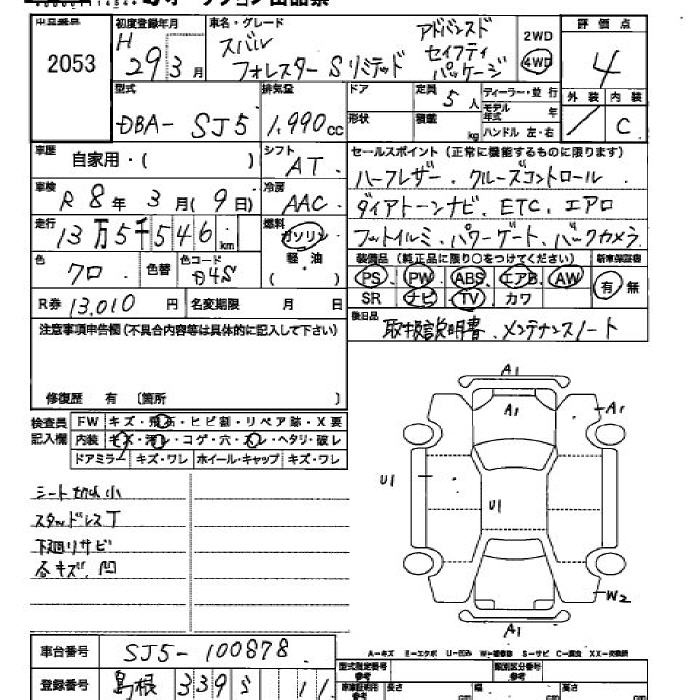 2053
初度登録年月
H 29 3月
車名・グレード
スバル
フォレスター Sリミテッド
アドバンスド
セイフティ
パッケージ
2WD
4WD
評価点
4
外装 内装
C
型式
DBA- SJ5
排気量
1,990cc
ドア
形状
定員 5人
積載 kg
ディーラー・並行
モデル年式 年
ハンドル 左・右
車歴
自家用・( )
シフト
AT
セールスポイント(正常に機能するものに限ります)
ハーフレザー、クルーズコントロール、
ダイアトーンナビ、ETC、エアロ
フットイルミ、パワーゲート、バックカメラ
車検
R 8年 3月(9日)
冷房
AAC
走行
13万5千546km
燃料
ガソリン
軽・油
( )
色
クロ
色替
色コード
D4S
装備品(純正品に限り○をつけてください)
PS PW ABS エアB AW
SR ナビ TV カワ
新車保証書
有 無
R券 13,010円
名変期限 月 日
後日品
取扱説明書、メンテナンスノート
注意事項申告欄(不具合内容等は具体的に記入して下さい)
修復歴 有 〔箇所 〕
検査員記入欄
FW キズ・飛石・ヒビ割・リペア跡・X要
内装 キズ・汚レ・コゲ・穴・スレ・ヘタリ・破レ
ドアミラー キズ・ワレ ホイール・キャップ キズ・ワレ
シート切レ小
スタッドレスT
下廻りサビ
各キズ、凹
A1
A1
A1
U1
U1
W2
A1
A-キズ E-エクボ U-凹み W-補修跡 S-サビ C-腐食 XX-交換済
車台番号
SJ5-100878
登録番号
島根 339 す 11
型式指定番号
参考
類別区分番号
参考
長さ cm
幅 cm
高さ cm